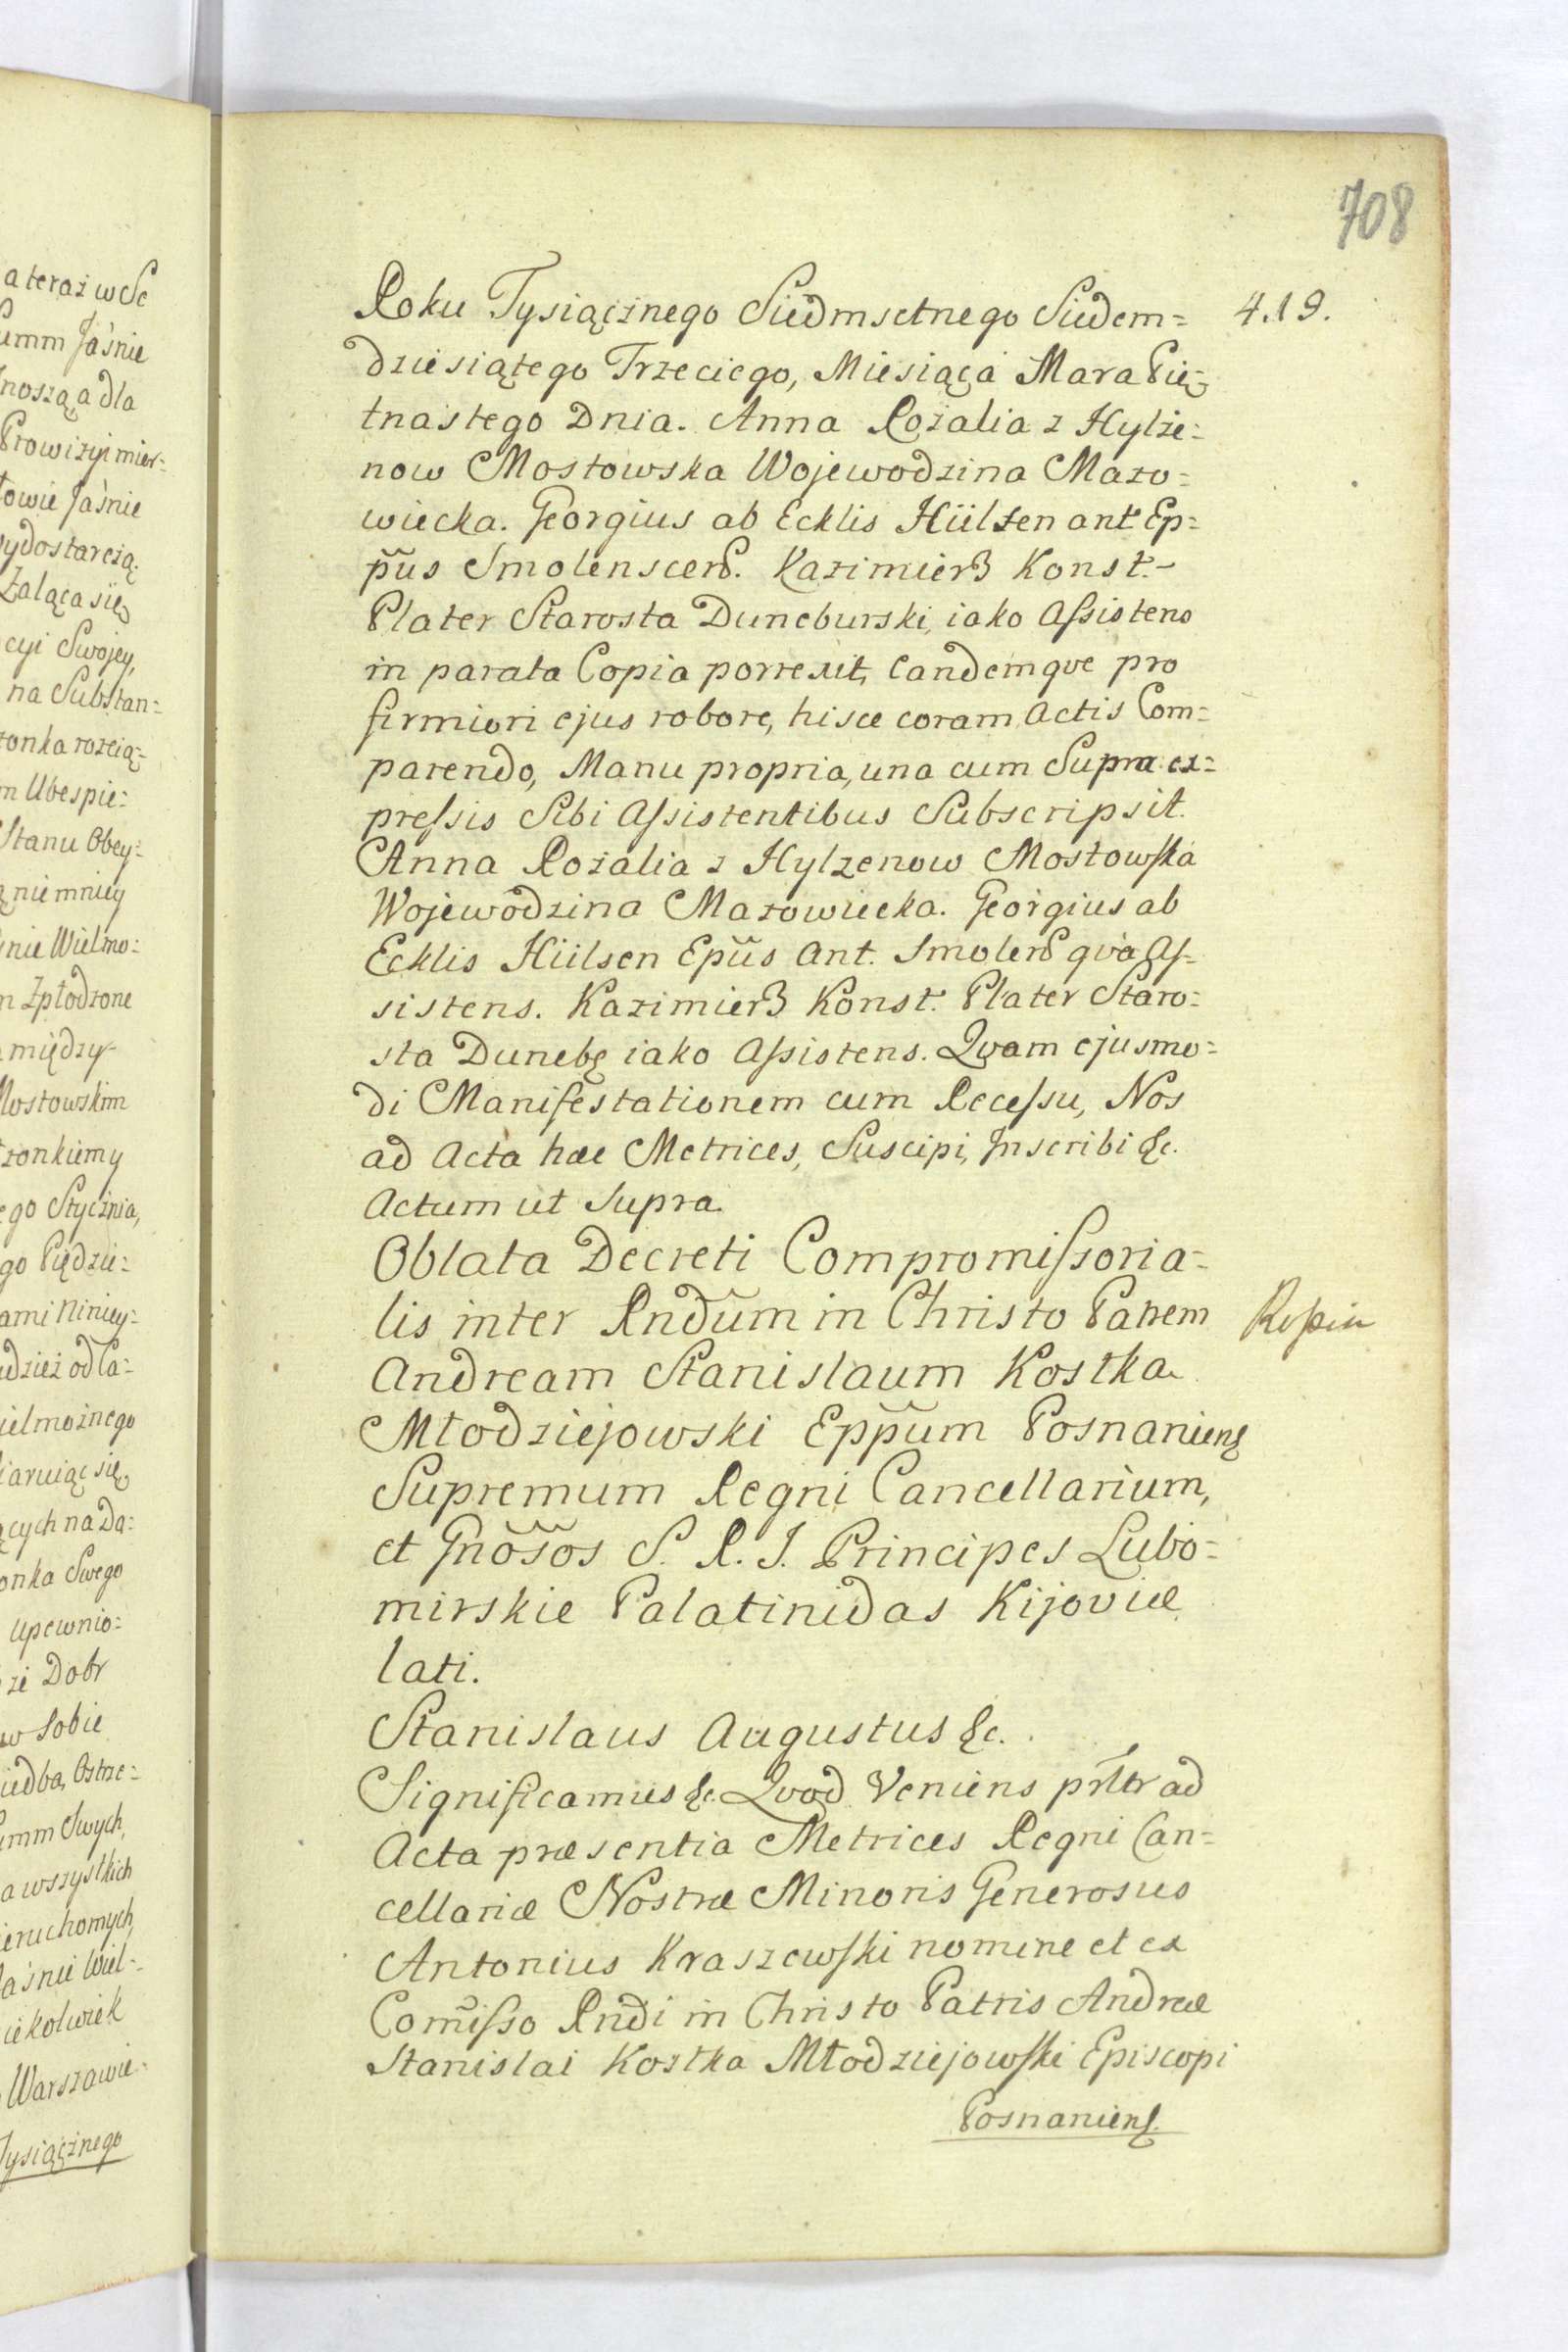 a teraz w Se
umm Jaśnie
noszą a dla
Prowizyi mier-
towie Jaśnie
ydostarczą.
Zaląca się
cyi Swojey,
na Substan=
zonka rozcią=
m Ubespie=
Stanu Obey=
ą nie mniey
nie Wielmo=
m Zpłodzone
między
Mostowskim
zonkiemy
ego Stycznia,
go Pięćdzie=
ami Niniey=
udzież od Ca=
ielmożnego
iaruiąc się
ących na Da=
onka Swego
upewnio=
ze Dobr
w Sobie
iedba, Ostrze=
umm Swych,
a wszystkich
ieruchomych,
Jaśnie Wiel=
iekolwiek
Warszawie
Tysiącznego
708
Roku Tysiącznego Siedmsetnego Siedem= 4.19.
dziesiątego Trzeciego, Miesiąca Mara Pię=
tnastego Dnia. Anna Rozalia z Hylze=
now Mostowska Wojewodzina Mazo=
wiecka. Georgius ab Ecklis Hülsen ant Ep=
pus Smolenscens. Kazimierz Konst.
Plater Starosta Duneburski, iako Assistens
in parata Copia porrexit, eandemque pro
firmiori ejus robore, hisce coram Actis Com=
parendo, Manu propria, una cum Supra ex=
pressis Sibi Assistentibus Subscripsit.
Anna Rozalia z Hylzenow Mostowska
Wojewodzina Mazowiecka. Georgius ab
Ecklis Hülsen Epus Ant. Smolens qva As=
sistens. Kazimierz Konst. Plater Staro=
sta Duneb iako Assistens. Qvam ejusmo=
di Manifestationem cum Recessu, Nos
ad Acta hæc Metrices, Suscipi, Inscribi &c.
Actum ut Supra.
Oblata Decreti Compromissoria=
lis inter Rndum in Christo Patrem
Andream Stanislaum Kostka
Młodziejowski Eppum Posnaniens
Supremum Regni Cancellarium,
et Gnosos S. R. I. Principes Lubo=
mirskie Palatinidas Kijoviæ
lati.
Stanislaus Augustus &c.
Significamus &c. Qvod Veniens prltr ad
Acta præsentia Metrices Regni Can=
cellariæ Nostræ Minoris Generosus
Antonius Kraszewski nomine et ex
Comisso Rndi in Christo Patris Andreæ
Stanislai Kostka Młodziejowski Episcopi
Posnaniens.